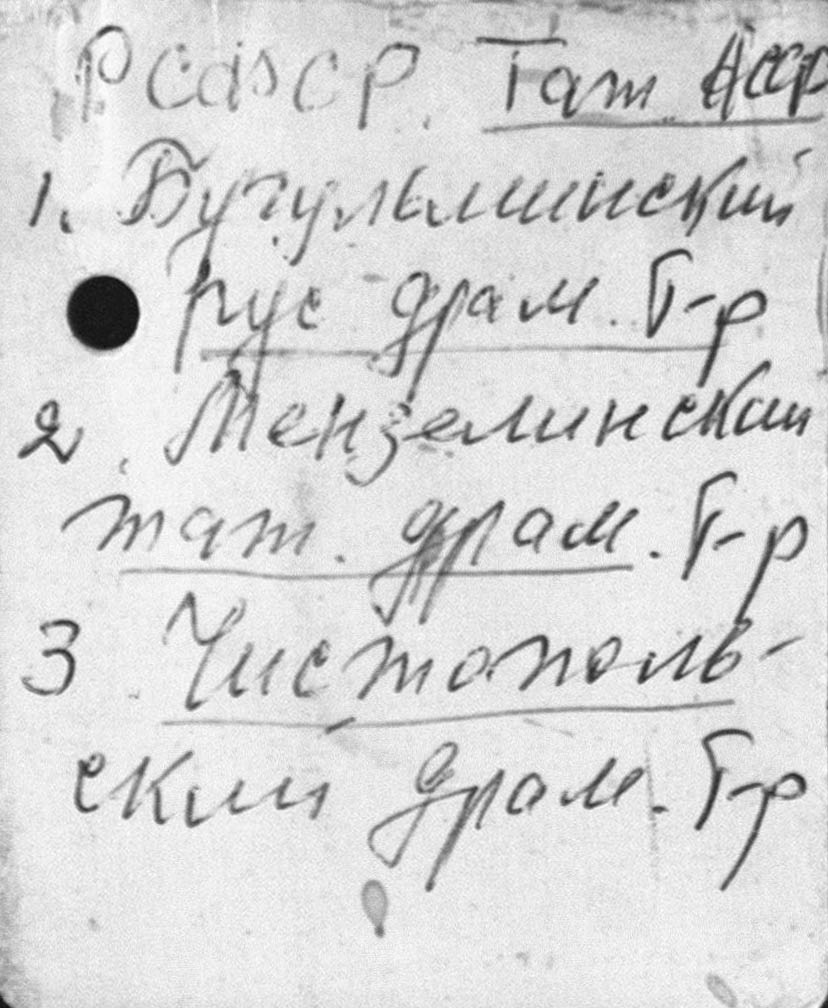 РСФСР. Тат АССР
1. Бугульминский
рус драм. Т-р
2. Мензелинский
тат. драм. Т-р
3. Чистополь-
ский драм. Т-р